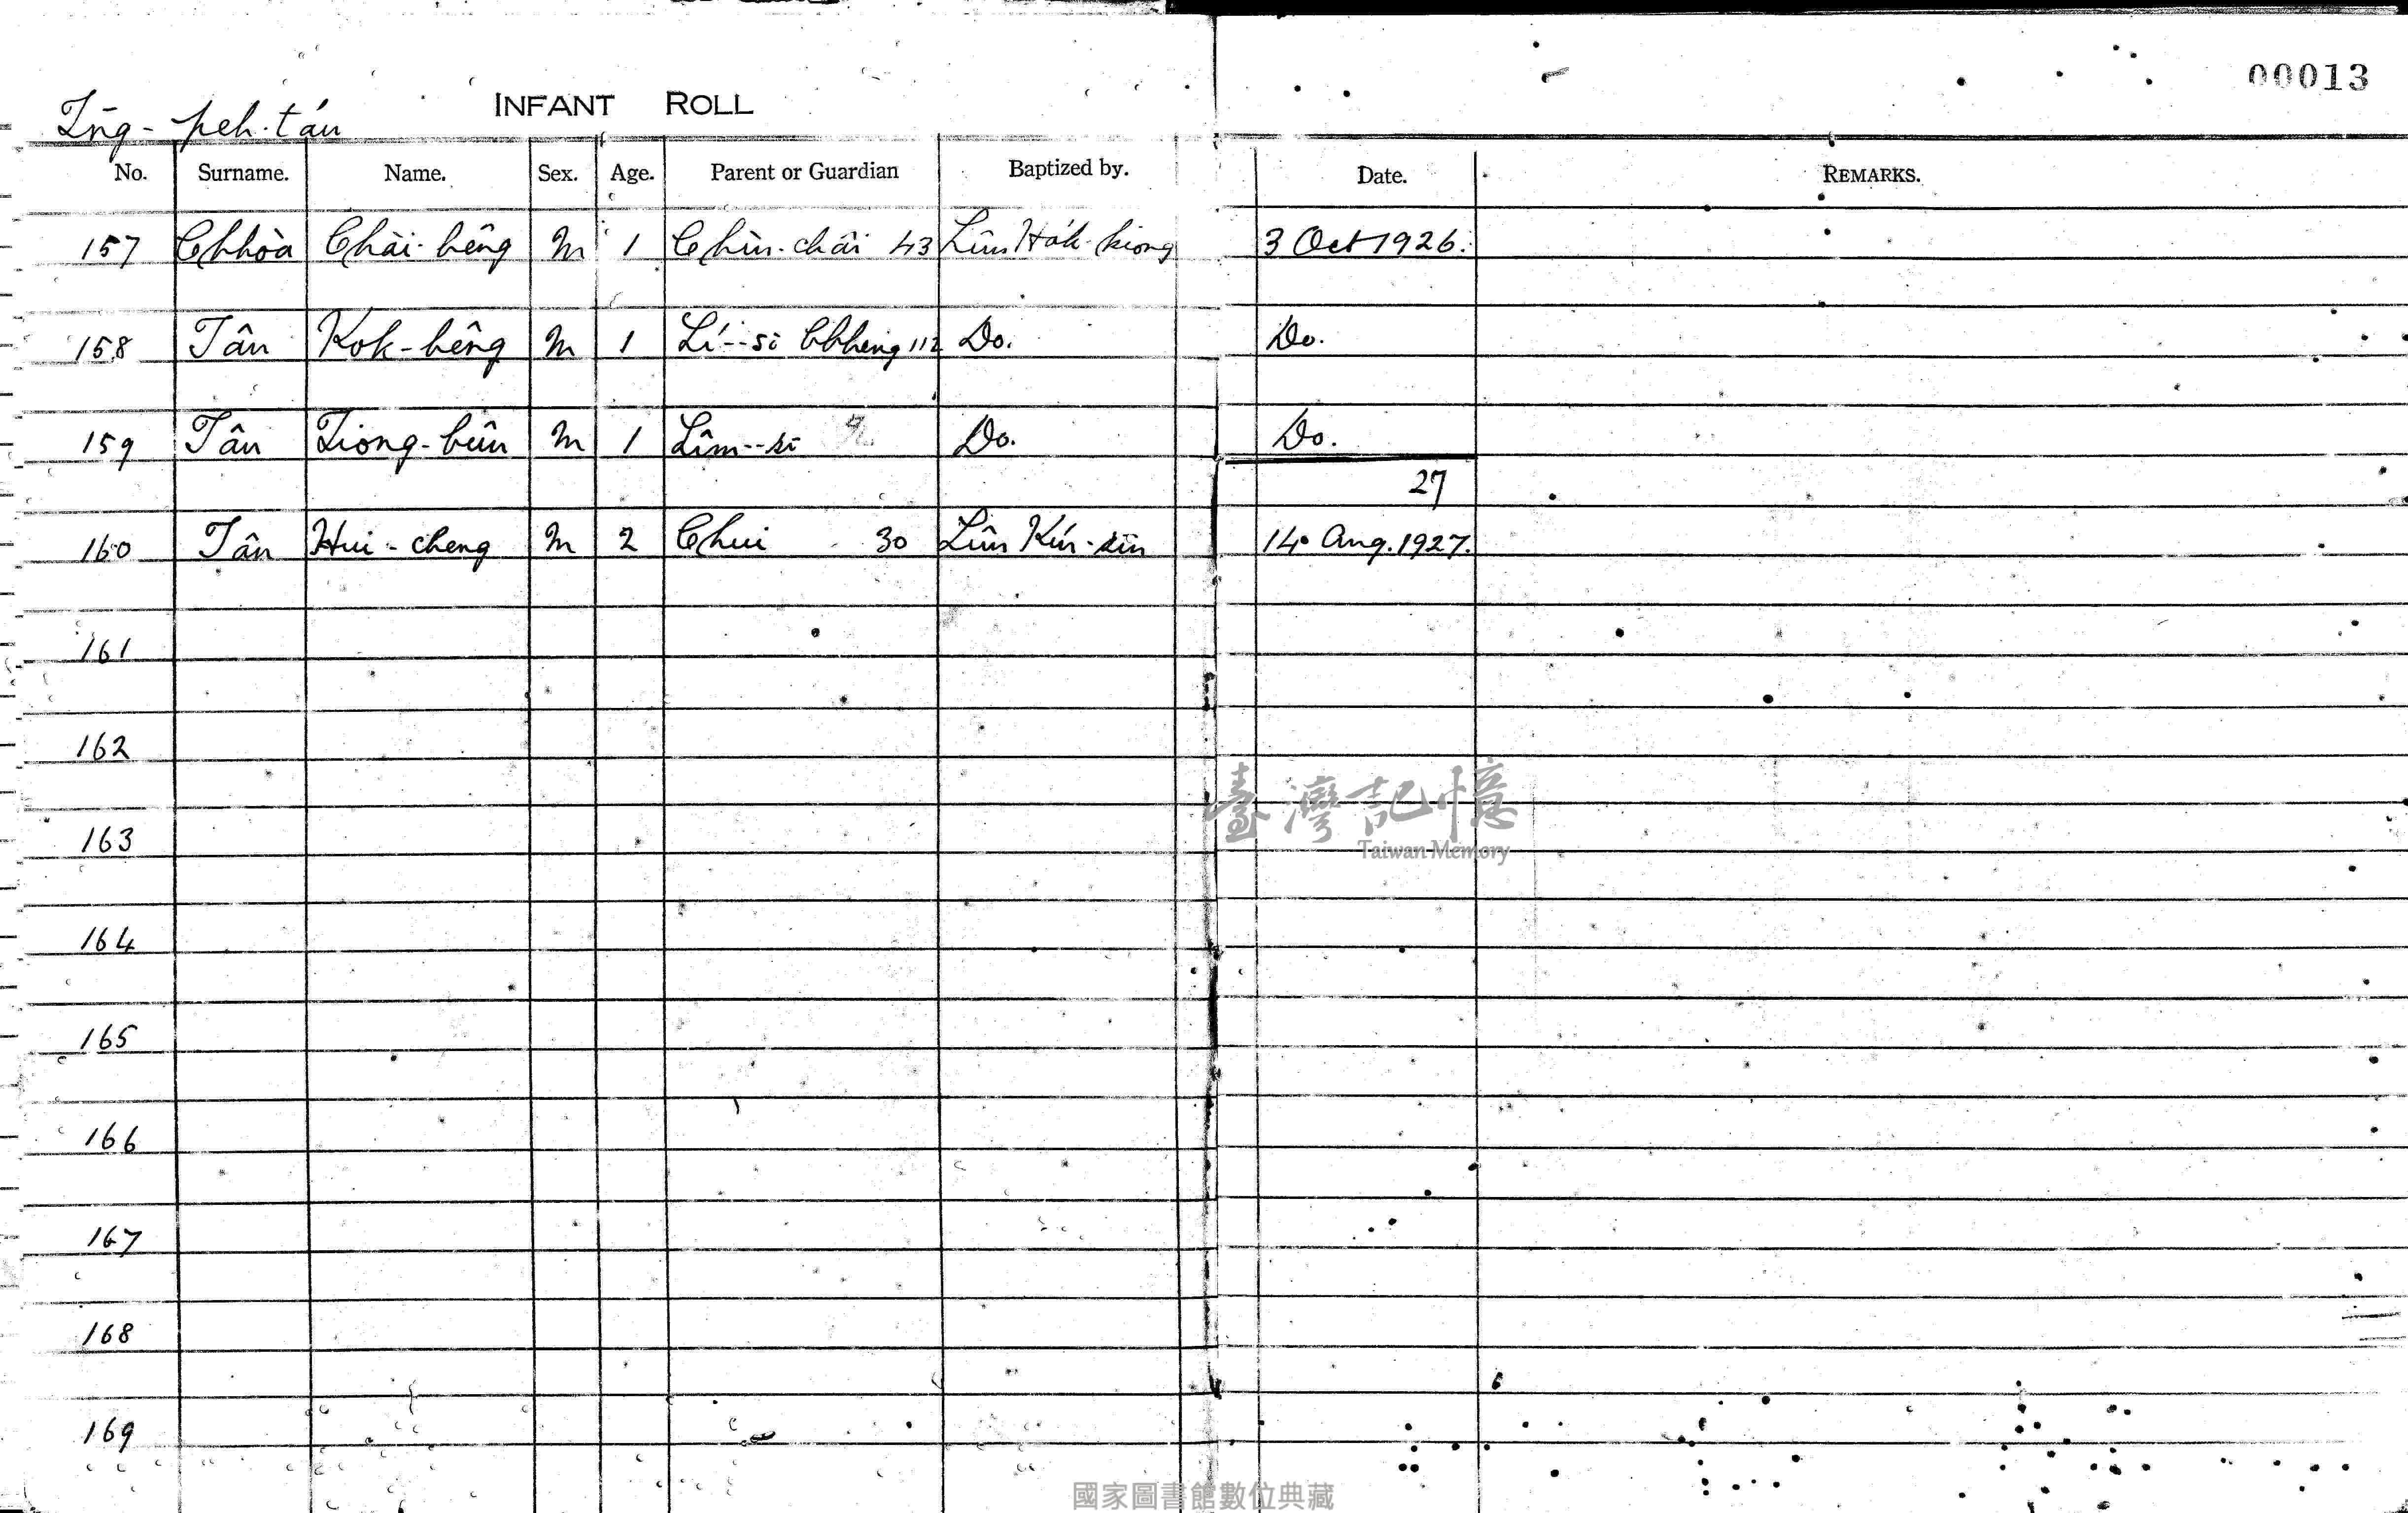 00013
INFANT ROLL
Tn̄g-peh-táu
No. Surname. Name. Sex. Age. Parent or Guardian Baptized by. Date. REMARKS.
157 Chhòa Chāi-bêng M 1 Chìn-chāi 43 Lîm Ha̍k-kiong 3 Oct 1926.
158 Tân Kok-bêng M 1 Lí--sī Chheng 112 Do. Do.
159 Tân Tiong-bûn M 1 Lîm--sī Do. Do.
27
160 Tân Hui-cheng M 2 Chui 30 Lîm Kín-sîn 14 Aug. 1927.
161
162
163
164
165
166
167
168
169
臺灣記憶
Taiwan Memory
國家圖書館數位典藏